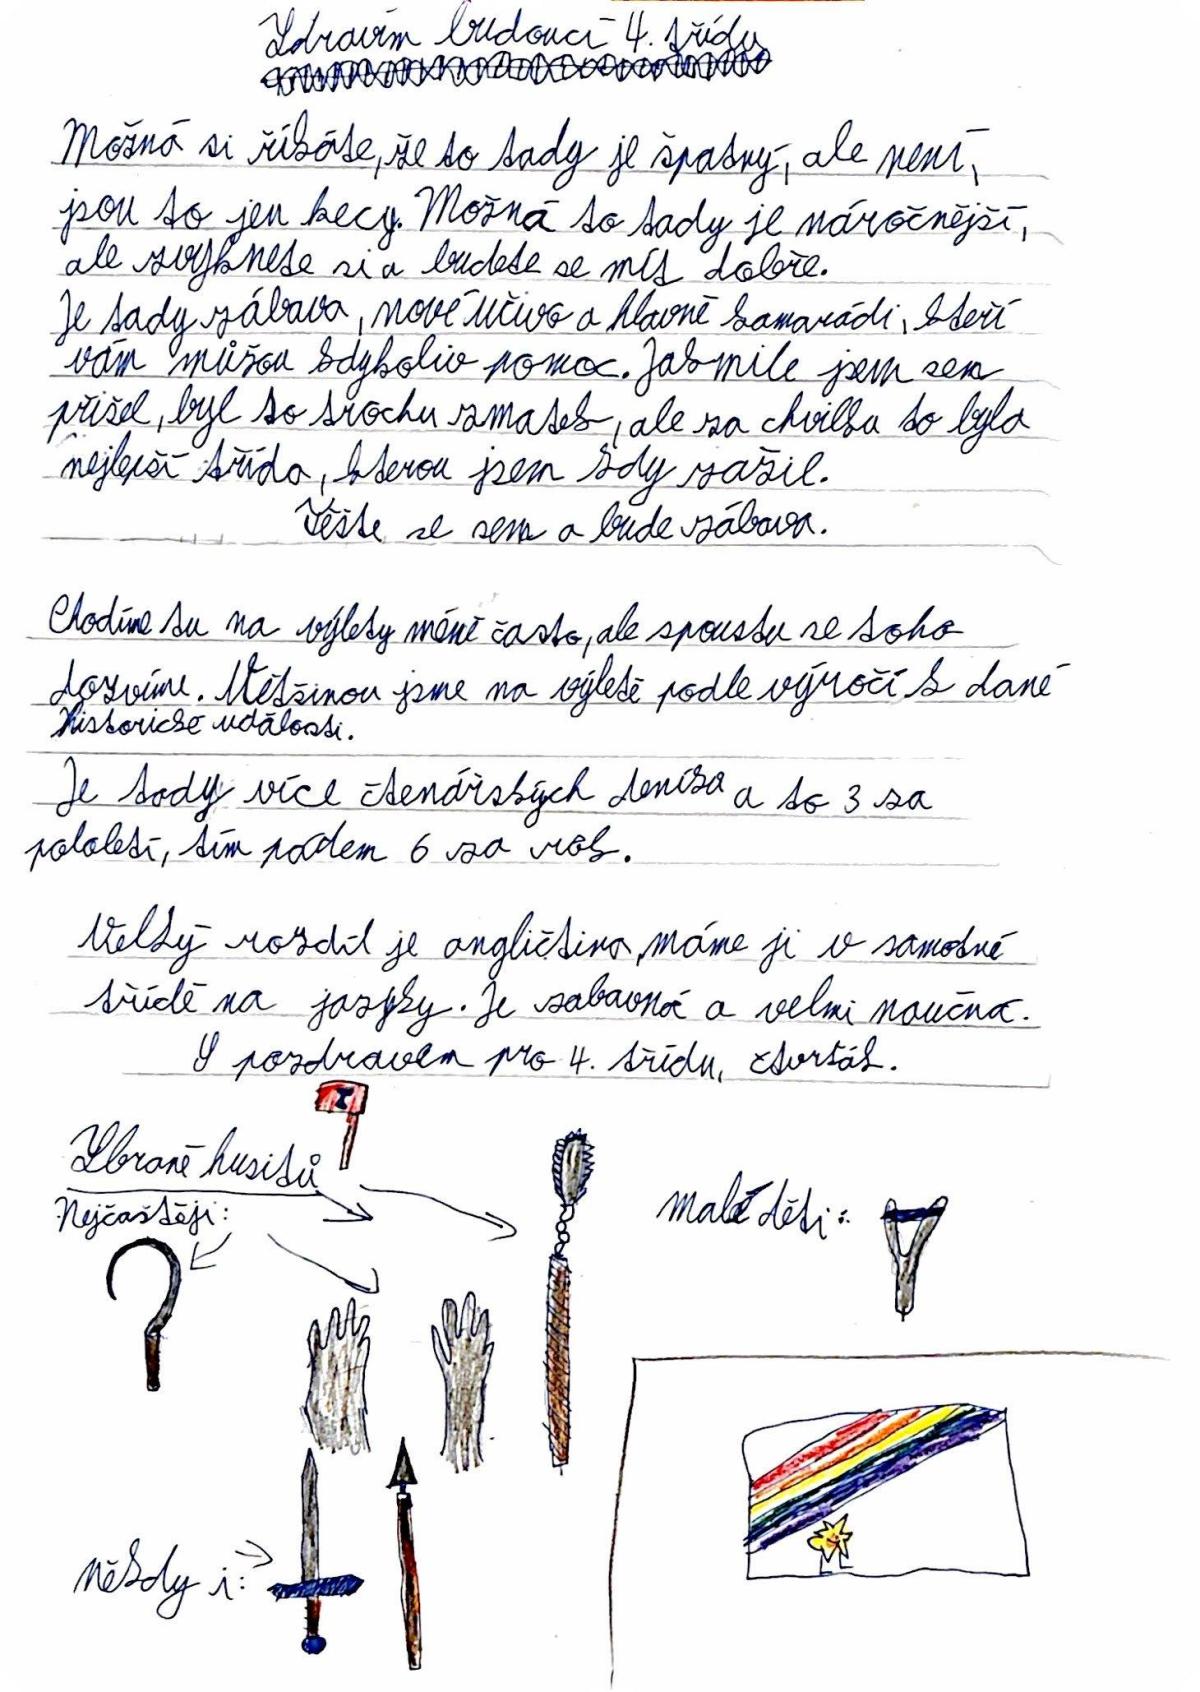 Zdravím budoucí 4. třídu
Možná si říkáte, že to tady je špatný, ale není,
jsou to jen kecy. Možná to tady je náročnější,
ale zvyknete si a budete se mít dobře.
Je tady zábava, nové učivo a hlavně kamarádi, kteří
vám můžou kdykoliv pomoc. Jakmile jsem sem
přišel, byl to trochu zmatek, ale za chvilku to byla
nejlepší třída, kterou jsem kdy zažil.
Těšte se sem a bude zábava.
Chodíme tu na výlety méně často, ale spoustu se toho
dozvíme. Většinou jsme na výletě podle výročí k dané
historické události.
Je tady více čtenářských deníka a to 3 za
pololetí, tím pádem 6 za rok.
Velký rozdíl je angličtina, máme ji v samotné
třídě na jazyky. Je zábavná a velmi naučná.
S pozdravem pro 4. třídu, čtvrťák.
Zbraně husitů
Nejčastěji:
malé děti:
někdy i: